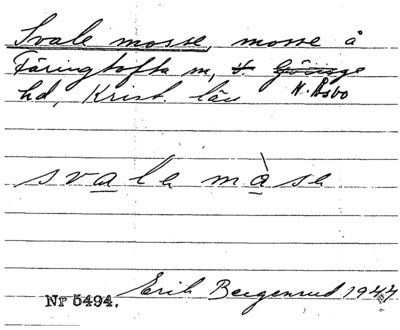 Svale mosse, mosse å
Färingtofta m, V. Göinge
hd, Krist. län N. Åsbo
svale màse
Nr 5494. Erik Bergenrud 1944